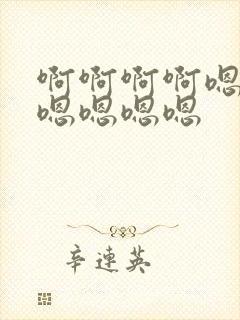 啊啊啊啊嗯
嗯嗯嗯嗯
辛連英